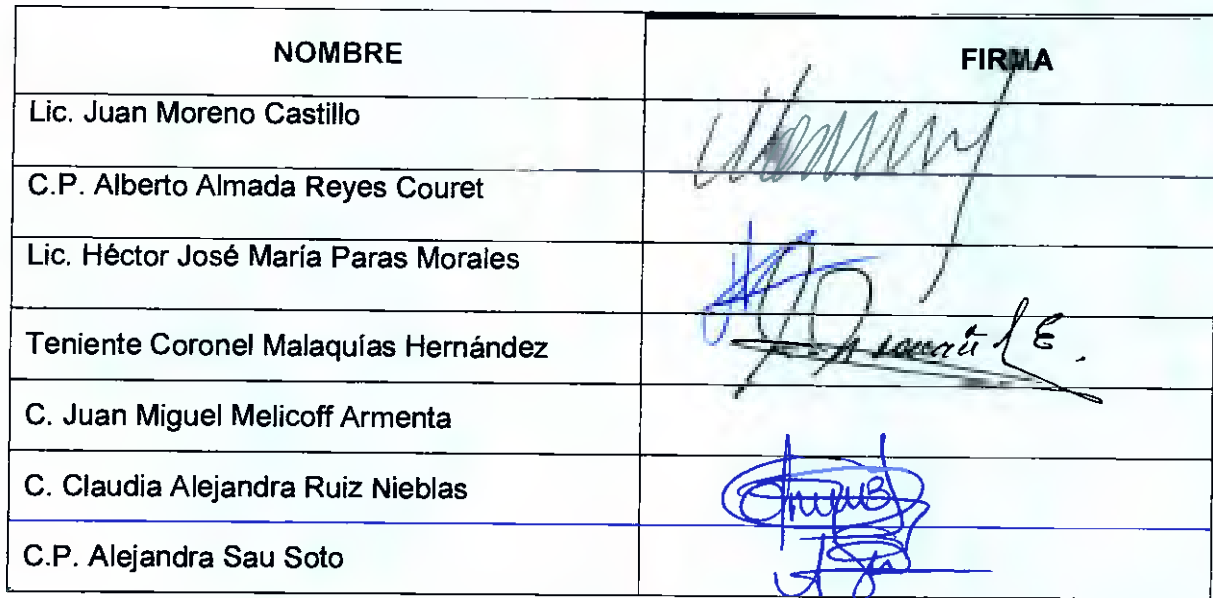 NOMBRE FIRMA
Lic. Juan Moreno Castillo
C.P. Alberto Almada Reyes Couret
Lic. Héctor José María Paras Morales
Teniente Coronel Malaquías Hernández
C. Juan Miguel Melicoff Armenta
C. Claudia Alejandra Ruiz Nieblas
C.P. Alejandra Sau Soto